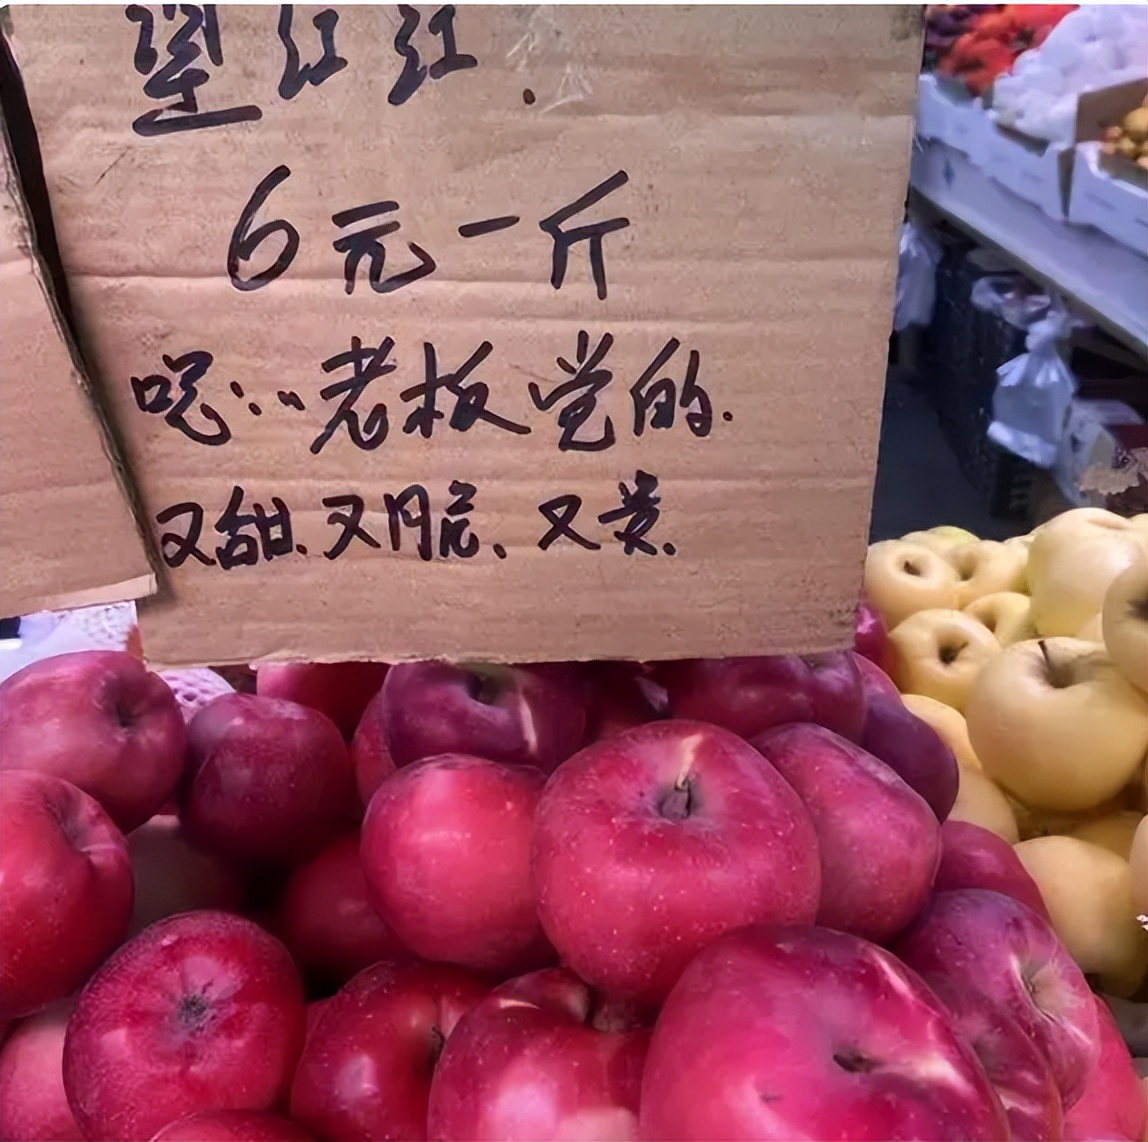 红红.
6元一斤
呢:··老板觉的.
又甜.又脆、又贵.